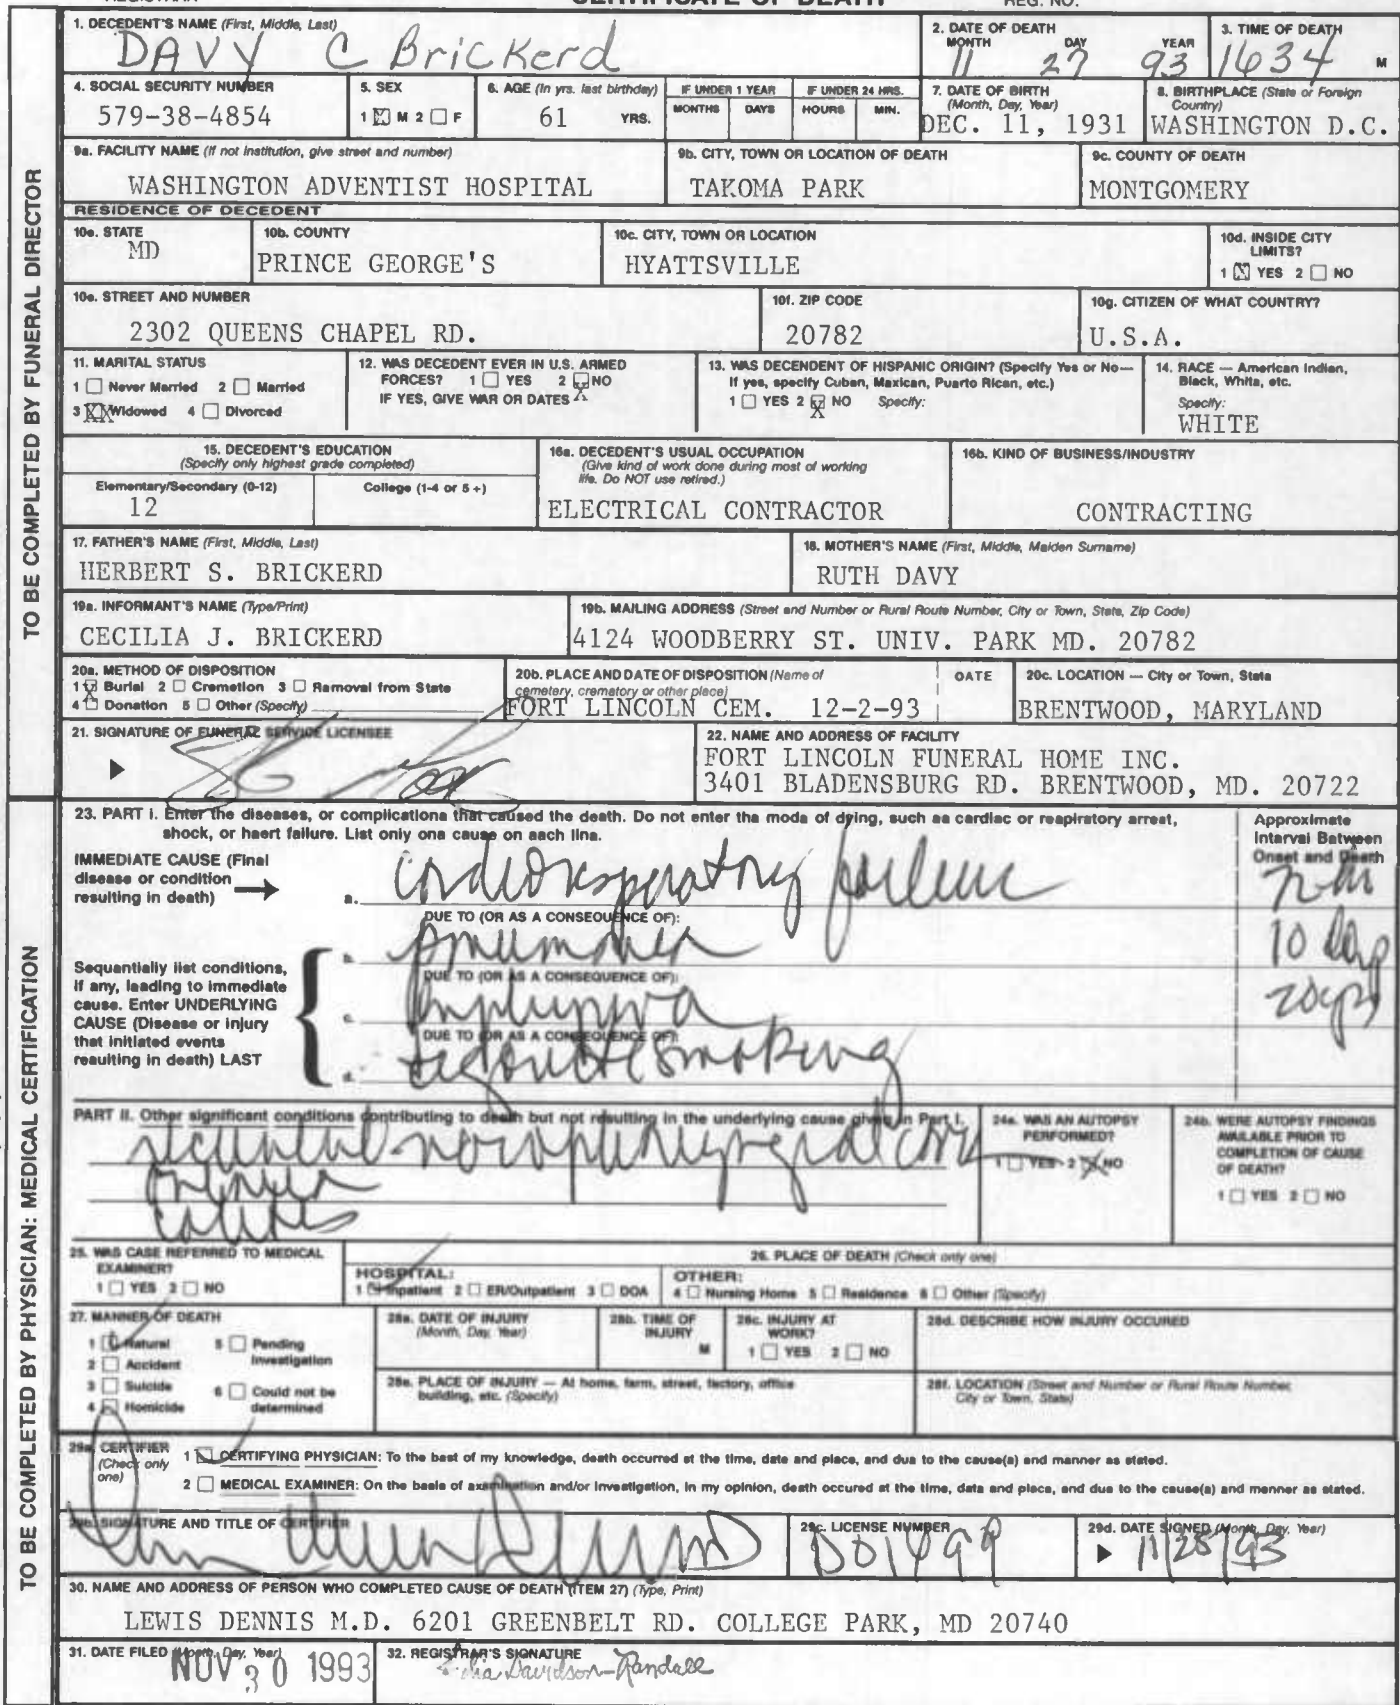 CERTIFICATE OF DEATH
REG. NO.
1. DECEDENT'S NAME (First, Middle, Last)
DAVY C Brickerd
2. DATE OF DEATH
MONTH DAY YEAR
11 27 93
3. TIME OF DEATH
1634 M
4. SOCIAL SECURITY NUMBER
579-38-4854
5. SEX
1 ☒ M 2 ☐ F
6. AGE (In yrs. last birthday)
61 YRS.
IF UNDER 1 YEAR
MONTHS DAYS
IF UNDER 24 HRS.
HOURS MIN.
7. DATE OF BIRTH
(Month, Day, Year)
DEC. 11, 1931
8. BIRTHPLACE (State or Foreign
Country)
WASHINGTON D.C.
9a. FACILITY NAME (If not institution, give street and number)
WASHINGTON ADVENTIST HOSPITAL
9b. CITY, TOWN OR LOCATION OF DEATH
TAKOMA PARK
9c. COUNTY OF DEATH
MONTGOMERY
RESIDENCE OF DECEDENT
10a. STATE
MD
10b. COUNTY
PRINCE GEORGE'S
10c. CITY, TOWN OR LOCATION
HYATTSVILLE
10d. INSIDE CITY
LIMITS?
1 ☒ YES 2 ☐ NO
10e. STREET AND NUMBER
2302 QUEENS CHAPEL RD.
10f. ZIP CODE
20782
10g. CITIZEN OF WHAT COUNTRY?
U.S.A.
11. MARITAL STATUS
1 ☐ Never Married 2 ☐ Married
3 ☒ Widowed 4 ☐ Divorced
12. WAS DECEDENT EVER IN U.S. ARMED
FORCES? 1 ☐ YES 2 ☒ NO
IF YES, GIVE WAR OR DATES
13. WAS DECENDENT OF HISPANIC ORIGIN? (Specify Yes or No—
If yes, specify Cuban, Mexican, Puerto Rican, etc.)
1 ☐ YES 2 ☒ NO Specify:
14. RACE — American Indian,
Black, White, etc.
Specify:
WHITE
15. DECEDENT'S EDUCATION
(Specify only highest grade completed)
Elementary/Secondary (0-12)
12
College (1-4 or 5+)
16a. DECEDENT'S USUAL OCCUPATION
(Give kind of work done during most of working
life. Do NOT use retired.)
ELECTRICAL CONTRACTOR
16b. KIND OF BUSINESS/INDUSTRY
CONTRACTING
17. FATHER'S NAME (First, Middle, Last)
HERBERT S. BRICKERD
18. MOTHER'S NAME (First, Middle, Maiden Surname)
RUTH DAVY
19a. INFORMANT'S NAME (Type/Print)
CECILIA J. BRICKERD
19b. MAILING ADDRESS (Street and Number or Rural Route Number, City or Town, State, Zip Code)
4124 WOODBERRY ST. UNIV. PARK MD. 20782
20a. METHOD OF DISPOSITION
1 ☒ Burial 2 ☐ Cremation 3 ☐ Removal from State
4 ☐ Donation 5 ☐ Other (Specify)
20b. PLACE AND DATE OF DISPOSITION (Name of
cemetery, crematory or other place) DATE
FORT LINCOLN CEM. 12-2-93
20c. LOCATION — City or Town, State
BRENTWOOD, MARYLAND
21. SIGNATURE OF FUNERAL SERVICE LICENSEE
22. NAME AND ADDRESS OF FACILITY
FORT LINCOLN FUNERAL HOME INC.
3401 BLADENSBURG RD. BRENTWOOD, MD. 20722
TO BE COMPLETED BY FUNERAL DIRECTOR
23. PART I. Enter the diseases, or complications that caused the death. Do not enter the mode of dying, such as cardiac or respiratory arrest,
shock, or heart failure. List only one cause on each line.
Approximate
Interval Between
Onset and Death
IMMEDIATE CAUSE (Final
disease or condition
resulting in death)
a. cardiorespiratory failure
DUE TO (OR AS A CONSEQUENCE OF):
b. pneumonia 10 days
DUE TO (OR AS A CONSEQUENCE OF):
c. emphysema 20 yrs
DUE TO (OR AS A CONSEQUENCE OF):
d. cigarette smoking
Sequentially list conditions,
if any, leading to immediate
cause. Enter UNDERLYING
CAUSE (Disease or injury
that initiated events
resulting in death) LAST
PART II. Other significant conditions contributing to death but not resulting in the underlying cause given in Part I.
nasopharyngeal
colitis
24a. WAS AN AUTOPSY
PERFORMED?
1 ☐ YES 2 ☒ NO
24b. WERE AUTOPSY FINDINGS
AVAILABLE PRIOR TO
COMPLETION OF CAUSE
OF DEATH?
1 ☐ YES 2 ☐ NO
25. WAS CASE REFERRED TO MEDICAL
EXAMINER?
1 ☐ YES 2 ☐ NO
26. PLACE OF DEATH (Check only one)
HOSPITAL:
1 ☑ Inpatient 2 ☐ ER/Outpatient 3 ☐ DOA
OTHER:
4 ☐ Nursing Home 5 ☐ Residence 6 ☐ Other (Specify)
27. MANNER OF DEATH
1 ☑ Natural 5 ☐ Pending
Investigation
2 ☐ Accident
3 ☐ Suicide 6 ☐ Could not be
determined
4 ☐ Homicide
28a. DATE OF INJURY
(Month, Day, Year)
28b. TIME OF
INJURY
M
28c. INJURY AT
WORK?
1 ☐ YES 2 ☐ NO
28d. DESCRIBE HOW INJURY OCCURED
28e. PLACE OF INJURY — At home, farm, street, factory, office
building, etc. (Specify)
28f. LOCATION (Street and Number or Rural Route Number,
City or Town, State)
29a. CERTIFIER
(Check only
one)
1 ☑ CERTIFYING PHYSICIAN: To the best of my knowledge, death occurred at the time, date and place, and due to the cause(s) and manner as stated.
2 ☐ MEDICAL EXAMINER: On the basis of examination and/or investigation, in my opinion, death occured at the time, date and place, and due to the cause(s) and manner as stated.
29b. SIGNATURE AND TITLE OF CERTIFIER
MD
29c. LICENSE NUMBER
D01499
29d. DATE SIGNED (Month, Day, Year)
11/28/93
30. NAME AND ADDRESS OF PERSON WHO COMPLETED CAUSE OF DEATH (ITEM 27) (Type, Print)
LEWIS DENNIS M.D. 6201 GREENBELT RD. COLLEGE PARK, MD 20740
31. DATE FILED (Month, Day, Year)
NOV 30 1993
32. REGISTRAR'S SIGNATURE
Davidson-Randall
TO BE COMPLETED BY PHYSICIAN: MEDICAL CERTIFICATION